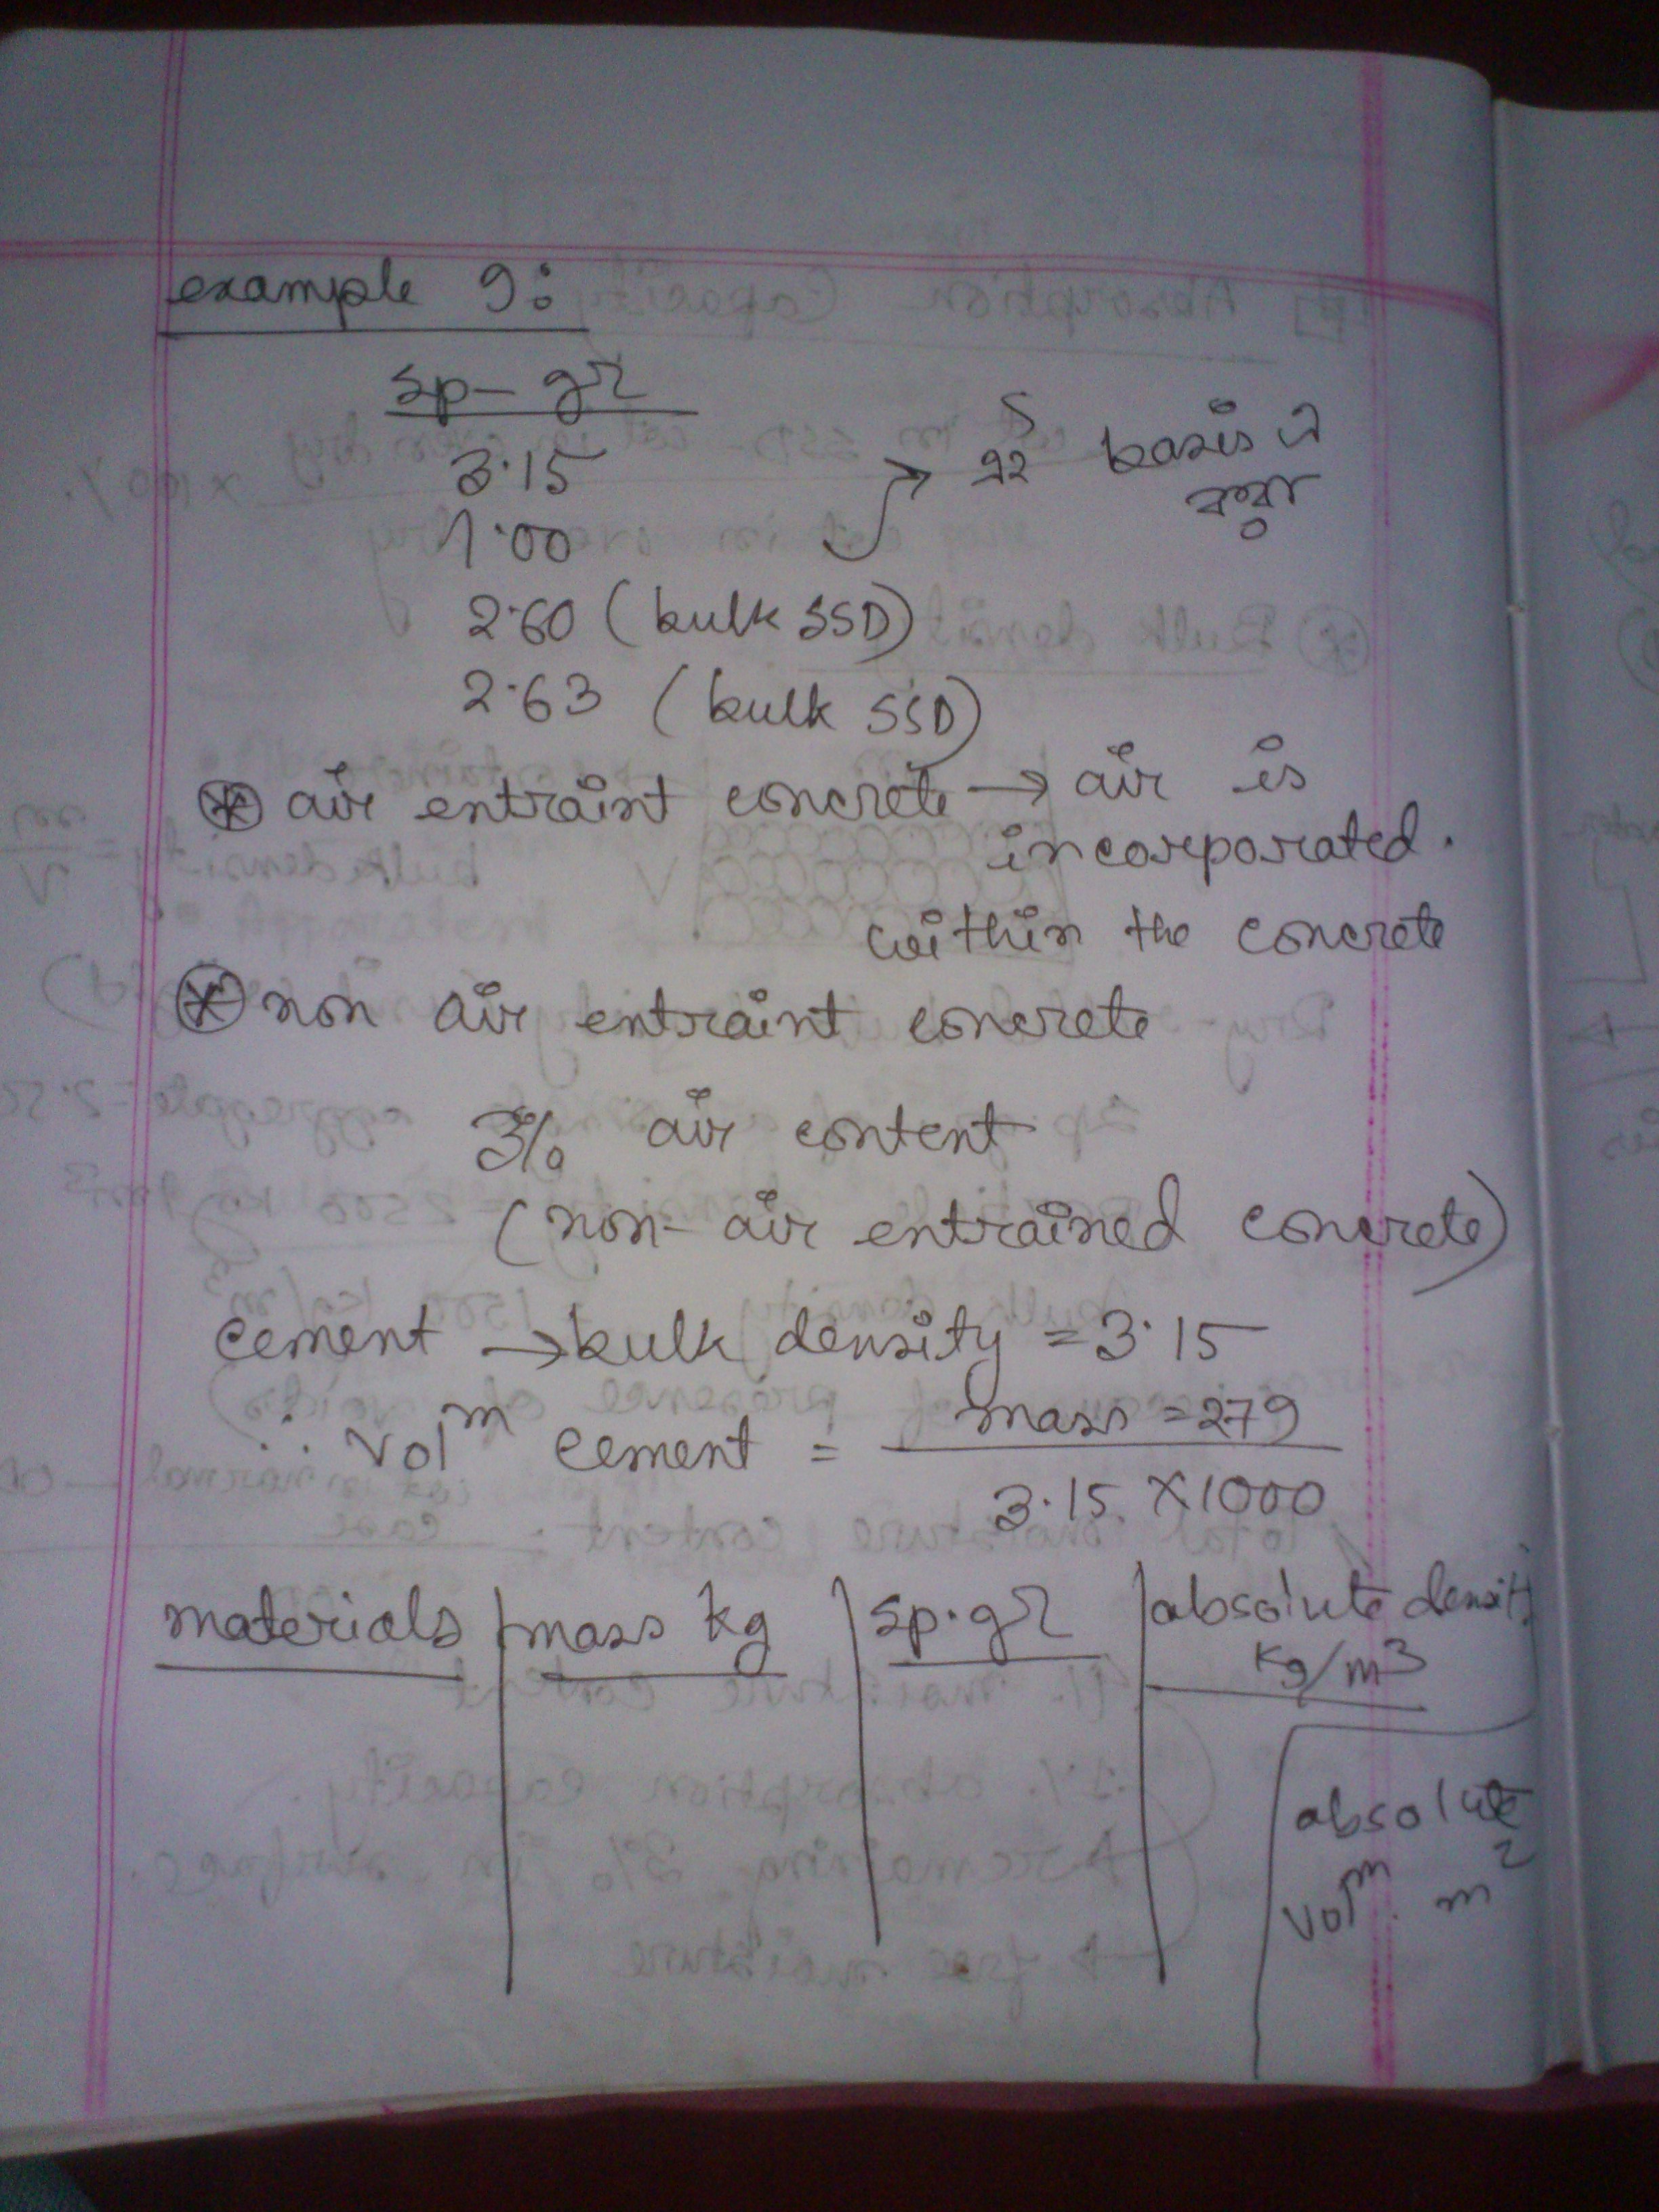 example 9:
sp- gr
3.15
1.00
2.60 (bulk SSD)
2.63 (bulk SSD)
basis এ
করব
air entraint concrete → air is
incorporated.
within the concrete
non air entraint concrete
3% air content
(non- air entrained concrete)
cement → bulk density = 3.15
∴ Vol^m cement = mass = 279
3.15 x 1000
materials mass kg sp.gr absolute density
kg/m³
absolute
Vol^m. m²